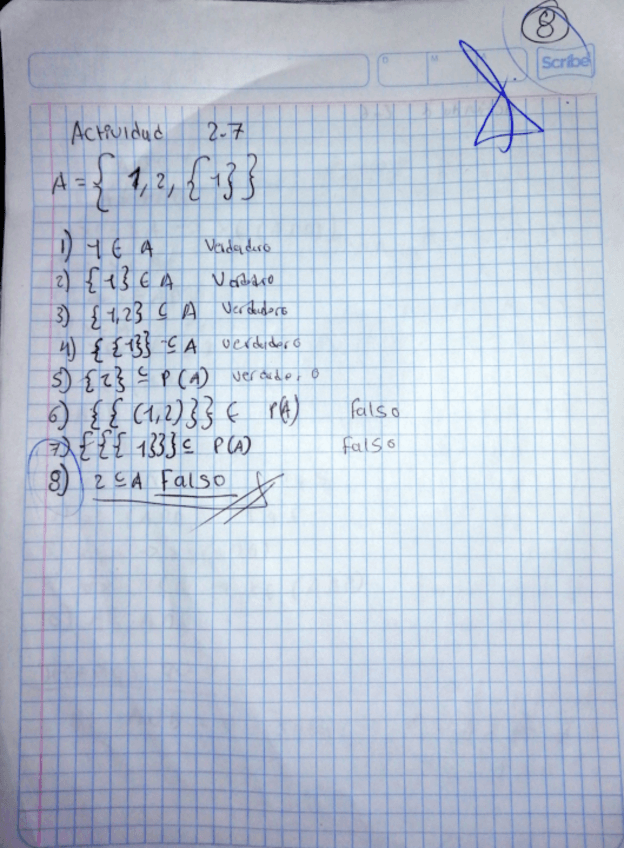 8
D M A
Scribe
Actividad 2.7
A = { 1, 2, {1}}
1) 1 ∈ A Verdadero
2) {1} ∈ A Verdadero
3) {1,2} ⊆ A Verdadero
4) {{1}} ⊆ A verdadero
5) {2} ⊆ P(A) verdadero
6) {{(1,2)}} ∈ P(A) falso
7) {{{1}}} ⊆ P(A) falso
8) 2 ⊆ A Falso